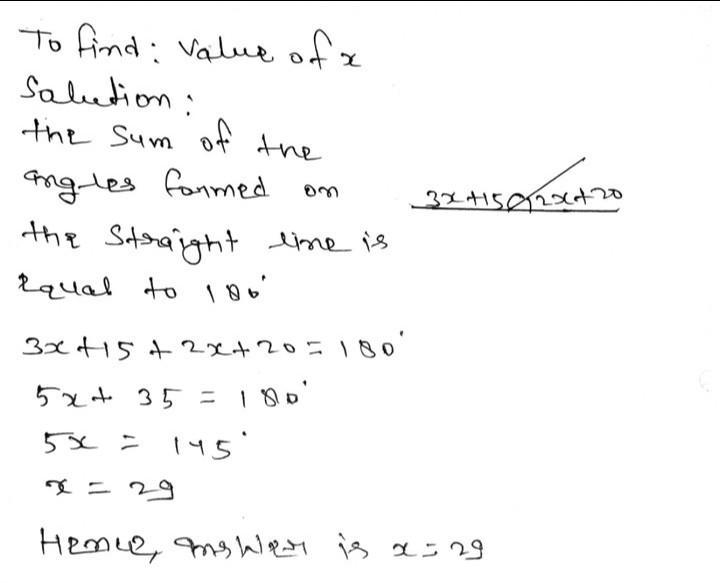 To find: Value of x
Salution:
the Sum of the
angles formed on
3x+15 2x+20
the straight line is
equal to 180°
3x+15+2x+20=180°
5x+35=180°
5x=145°
x=29
Hence, answer is x=29